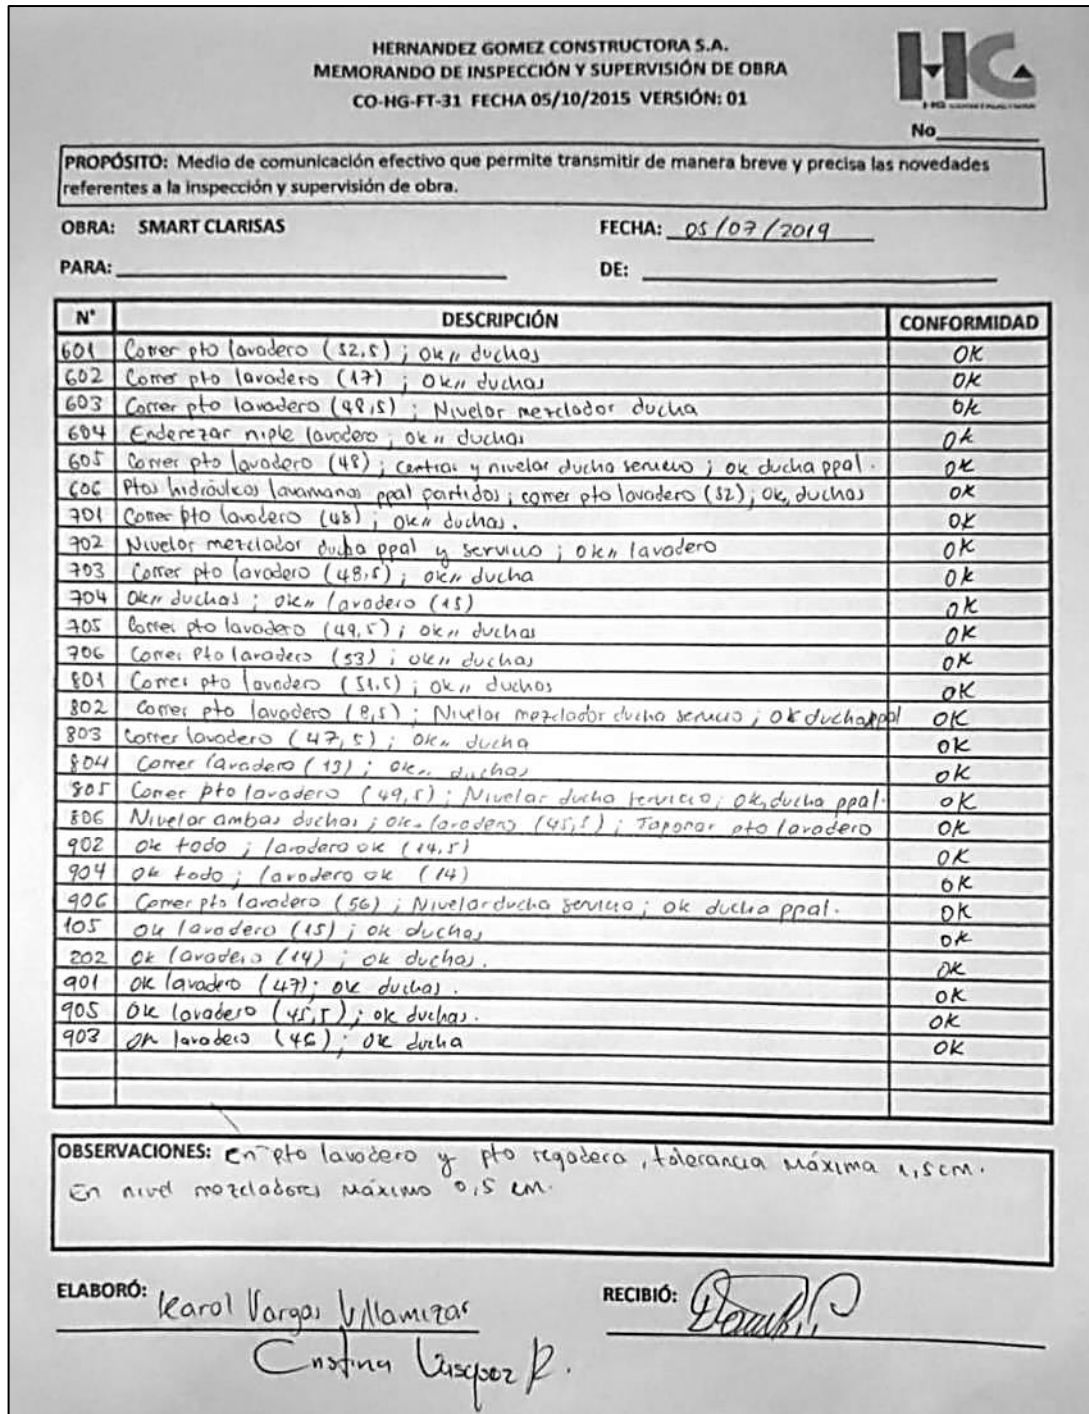 HERNANDEZ GOMEZ CONSTRUCTORA S.A.
MEMORANDO DE INSPECCIÓN Y SUPERVISIÓN DE OBRA
CO-HG-FT-31 FECHA 05/10/2015 VERSIÓN: 01
HG
HG CONSTRUCTORA
No
PROPÓSITO: Medio de comunicación efectivo que permite transmitir de manera breve y precisa las novedades
referentes a la inspección y supervisión de obra.
OBRA: SMART CLARISAS FECHA: 05/07/2019
PARA: DE:
N° DESCRIPCIÓN CONFORMIDAD
601 Correr pto lavadero (52,5) ; ok,, duchas OK
602 Correr pto lavadero (17) ; Ok,, duchas OK
603 Correr pto lavadero (48,5) ; Nivelar mezclador ducha Ok
604 Enderezar niple lavadero ; ok,, duchas Ok
605 Correr pto lavadero (48) ; centrar y nivelar ducha servicio ; ok ducha ppal. OK
606 Ptos hidráulicos lavamanos ppal partidos ; correr pto lavadero (52) ; ok, duchas OK
701 Correr pto lavadero (48) ; ok,, duchas. OK
702 Nivelar mezclador ducha ppal y servicio ; ok,, lavadero OK
703 Correr pto lavadero (48,5) ; ok,, ducha Ok
704 Ok,, duchas ; ok,, lavadero (15) OK
705 Correr pto lavadero (49,5) ; ok,, duchas OK
706 Correr Pto lavadero (53) ; ok,, duchas OK
801 Correr pto lavadero (51,5) ; ok,, duchas OK
802 Correr pto lavadero (8,5) ; Nivelar mezclador ducha servicio ; ok ducha ppal OK
803 Correr lavadero (47,5) ; ok,, ducha OK
804 Correr lavadero (13) ; ok,, duchas OK
805 Correr pto lavadero (49,5) ; Nivelar ducha servicio ; ok, ducha ppal. OK
806 Nivelar ambas duchas ; ok. lavadero (45,5) ; Taponar pto lavadero OK
902 Ok todo ; lavadero ok (14,5) OK
904 Ok todo ; lavadero ok (14) OK
906 Correr pto lavadero (56) ; Nivelar ducha servicio ; ok ducha ppal. OK
105 Ok lavadero (15) ; ok duchas OK
202 Ok lavadero (14) ; ok duchas. OK
901 OK lavadero (47) ; ok duchas. OK
905 Ok lavadero (45,5) ; ok duchas. OK
903 Ok lavadero (46) ; ok ducha OK
OBSERVACIONES: En pto lavadero y pto regadera, tolerancia Máxima 1,5 cm.
En nivel mezcladores Máximo 0,5 cm.
ELABORÓ: Karol Vargas Villamizar RECIBIÓ:
Cristina Vasquez R.